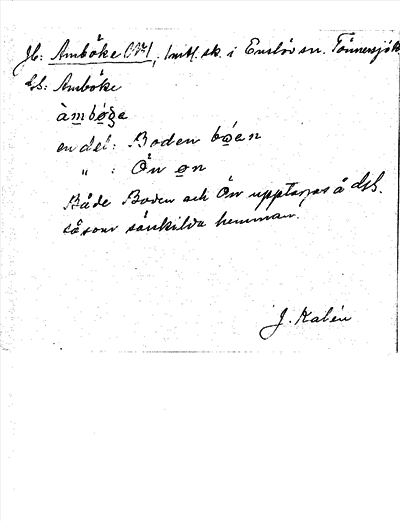 Jb: Amböke (N4), 1 mtl. sk. i Enslöv sn. Tönnersjö
GS: Amböke
àmbøgə
en del: Boden bǿən
" : Ön øn
Både Boden och Ön upptagas å GS.
såsom särskilda hemman.
J. Kalén